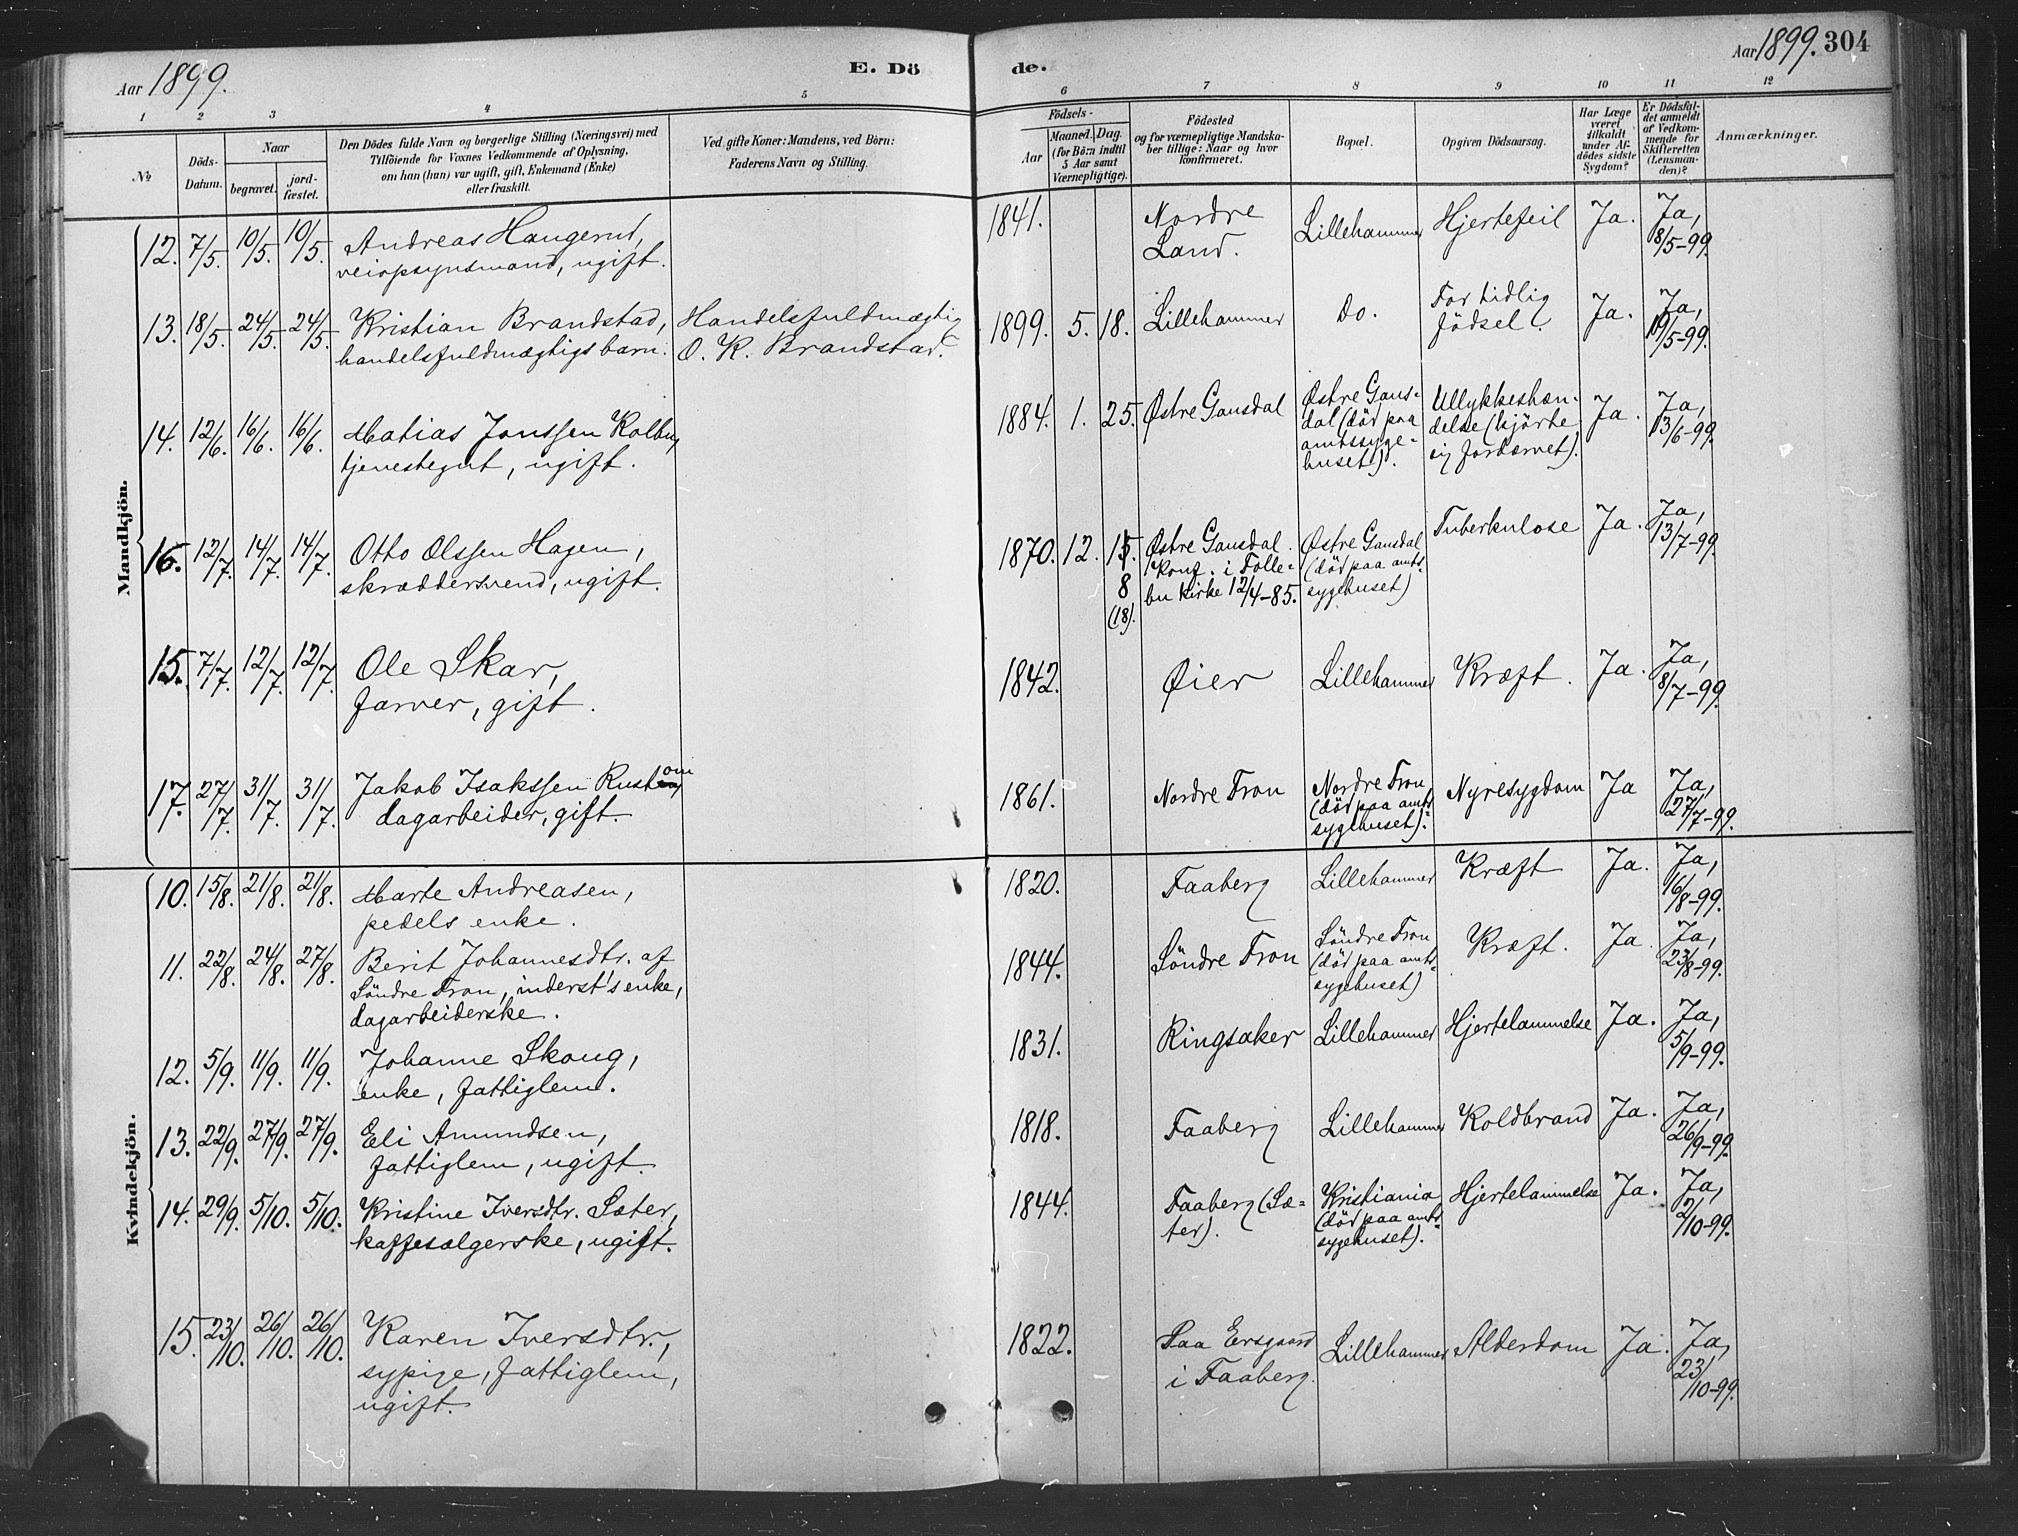 Aar 1899.
E. Dö
de.
Aar 1899. 304
1 2 3 4 5 6 7 8 9 10 11 12
№
Döds-
Datum.
Naar
begravet.
jord-
fæstet.
Den Dödes fulde Navn og borgerlige Stilling (Næringsvei) med
Tilföiende for Voxnes Vedkommende af Oplysning,
om han (hun) var ugift, gift, Enkemand (Enke)
eller fraskilt.
Ved gifte Koner: Mandens, ved Börn:
Faderens Navn og Stilling.
Födsels-
Aar
Maaned. Dag.
(for Börn indtil
5 Aar samt
Værnepligtige).
Födested
og for værnepligtige Mandska-
ber tillige: Naar og hvor
konfirmeret.
Bopæl.
Opgiven Dödsaarsag.
Har Læge
været
tilkaldt
under Af-
dödes sidste
Sygdom?
Er Dödsfal-
det anmeldt
af Vedkom-
mende for
Skifteretten
(Lensman-
den)?
Anmærkninger.
Mandkjön.
12. 7/5. 10/5. 10/5. Andreas Haugerud,
veiopsynsmand, ugift.
1841. Nordre
Land.
Lillehammer Hjertefeil Ja. Ja,
8/5-99.
13. 18/5. 24/5. 24/5. Kristian Brandstad,
handelsfuldmægtigs barn.
Handelsfuldmægtig
O. K. Brandstad.
1899. 5. 18. Lillehammer Do. For tidlig
födsel. Ja. Ja,
19/5-99.
14. 12/6. 16/6. 16/6. Mathias Jonssen Kolbu,
tjenestegut, ugift.
1884. 1. 25. Østre Gausdal Østre Gaus-
dal (död paa
amtssyge-
huset).
Ullykkeshæn-
delse (kjörte
sig fordærvet).
Ja. Ja,
13/6-99.
16. 12/7. 14/7. 14/7. Otto Olssen Hagen,
skræddersvend, ugift.
1870. 12. 15.
8
(18).
Østre Gausdal.
Konf. i Folle-
bu kirke 12/4-85.
Østre Gausdal
(död paa amts-
sygehuset)
Tuberkulose Ja. Ja,
13/7-99.
15. 7/7. 12/7. 12/7. Ole Skar,
farver, gift.
1842. Øier Lillehammer Kræft. Ja. Ja,
8/7-99.
17. 27/7. 31/7. 31/7. Jakob Isakssen Rustom
dagarbeider, gift.
1861. Nordre Fron Nordre Fron
(död paa amts-
sygehuset).
Nyresygdom Ja Ja,
27/7-99.
Kvindekjön.
10. 15/8. 21/8. 21/8. Marte Andreasen,
pedels enke.
1820. Faaberg Lillehammer Kræft Ja. Ja,
16/8-99.
11. 22/8. 24/8. 27/8. Berit Johannesdtr. af
Söndre Fron, inderst's enke,
dagarbeiderske.
1844. Söndre Fron Söndre Fron
(död paa amts-
sygehuset)
Kræft. Ja. Ja,
23/8-99.
12. 5/9. 11/9. 11/9. Johanne Skoug,
enke, fattiglem.
1831. Ringsaker Lillehammer Hjertelammelse Ja. Ja,
5/9-99.
13. 22/9. 27/9. 27/9. Eli Amundsen,
fattiglem, ugift.
1818. Faaberg Lillehammer Koldbrand Ja. Ja,
26/9-99.
14. 29/9. 5/10. 5/10. Kristine Iversdtr. Sæter,
kaffesælgerske, ugift.
1844. Faaberg (Sæ-
ter).
Kristiania
(död paa amts-
sygehuset).
Hjertelammelse Ja. Ja,
2/10-99.
15. 23/10. 26/10. 26/10. Karen Iversdtr.,
sypige, fattiglem,
ugift.
1822. Paa Ersgaard
i Faaberg.
Lillehammer Alderdom Ja. Ja,
23/10-99.